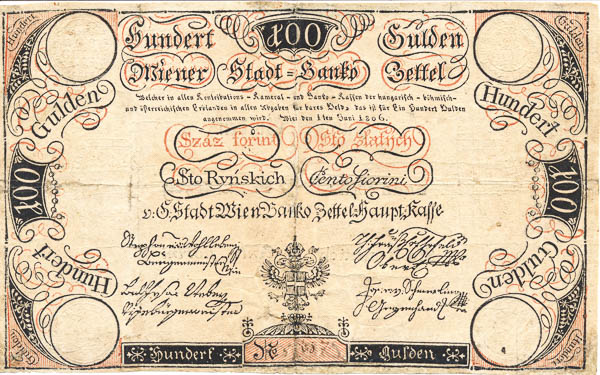 Hundert 100 Gulden
Wiener Stadt=Banko Zettel
Welcher in allen Kontributions- Kameral- und Banko-Kassen der hungarisch-böhmisch-
und österreichischen Erblanden in allen Abgaben für bares Geld, das ist für Ein Hundert Gulden
angenommen wird. Wien den 1ten Juni 1806.
Száz forint Sto zlatych
Sto Ryńskich Cento fiorini
v: G. Stadt Wien Banko Zettel Haupt Kasse
Gulden
Hundert
100
100
Hundert
Gulden
Bürgermeister
Hundert No Gulden
Hundert
Gulden
Gulden
Hundert